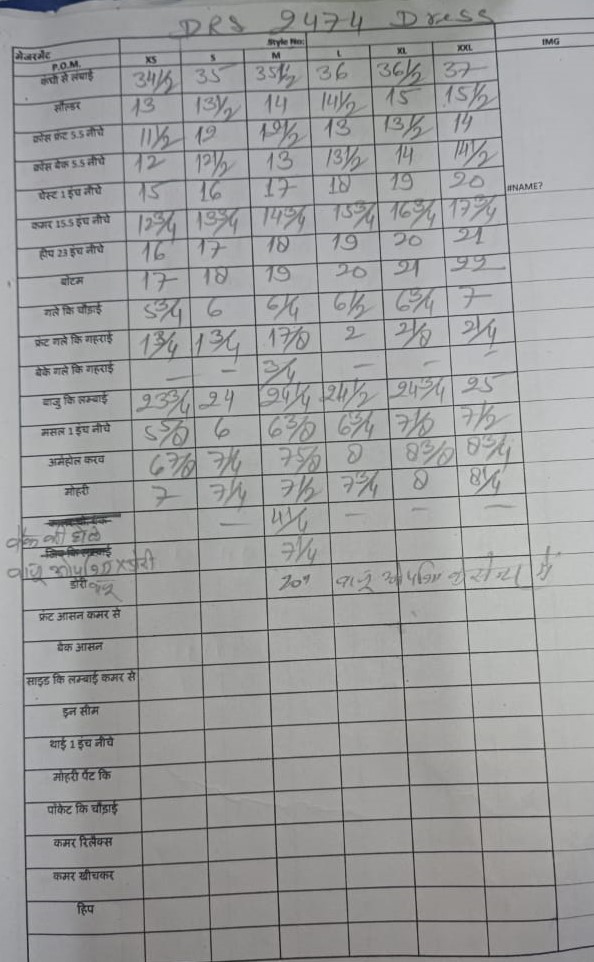 DRS 2474 Dress
मेजरमेंट Style No: IMG
P.O.M. XS S M L XL XXL
कंधे से लंबाई 34 1/2 35 35 1/2 36 36 1/2 37
सोल्डर 13 13 1/2 14 14 1/2 15 15 1/2
क्रोस फ्रंट 5.5 नीचे 11 1/2 12 12 1/2 13 13 1/2 14
क्रोस बेक 5.5 नीचे 12 12 1/2 13 13 1/2 14 14 1/2
चेस्ट 1 इंच नीचे 15 16 17 18 19 20 #NAME?
कमर 15.5 इंच नीचे 12 3/4 13 3/4 14 3/4 15 3/4 16 3/4 17 3/4
हीप 23 इंच नीचे 16 17 18 19 20 21
बोटम 17 18 19 20 21 22
गले कि चौड़ाई 5 3/4 6 6 1/4 6 1/2 6 3/4 7
फ्रंट गले कि गहराई 1 3/4 1 3/4 1 7/8 2 2 1/8 2 1/4
बेके गले कि गहराई — — 3/4 — — —
बाजु कि लम्बाई 23 3/4 24 24 1/4 24 1/2 24 3/4 25
मसल 1 इंच नीचे 5 5/8 6 6 3/8 6 3/4 7 1/8 7 1/2
अर्महोल करव 6 7/8 7 1/4 7 5/8 8 8 3/8 8 3/4
मोहरी 7 7 1/4 7 1/2 7 3/4 8 8 1/4
— 4 1/4 — — —
बैक की
7 1/4
बाजू ओपनिंग X डोरी
डोरी 20" बाजू ओपनिंग के सेन्टर में
फ्रंट आसन कमर से
बेक आसन
साइड कि लम्बाई कमर से
इन सीम
थाई 1 इंच नीचे
मोहरी पेंट कि
पॉकेट कि चौड़ाई
कमर रिलैक्स
कमर खीचकर
हिप